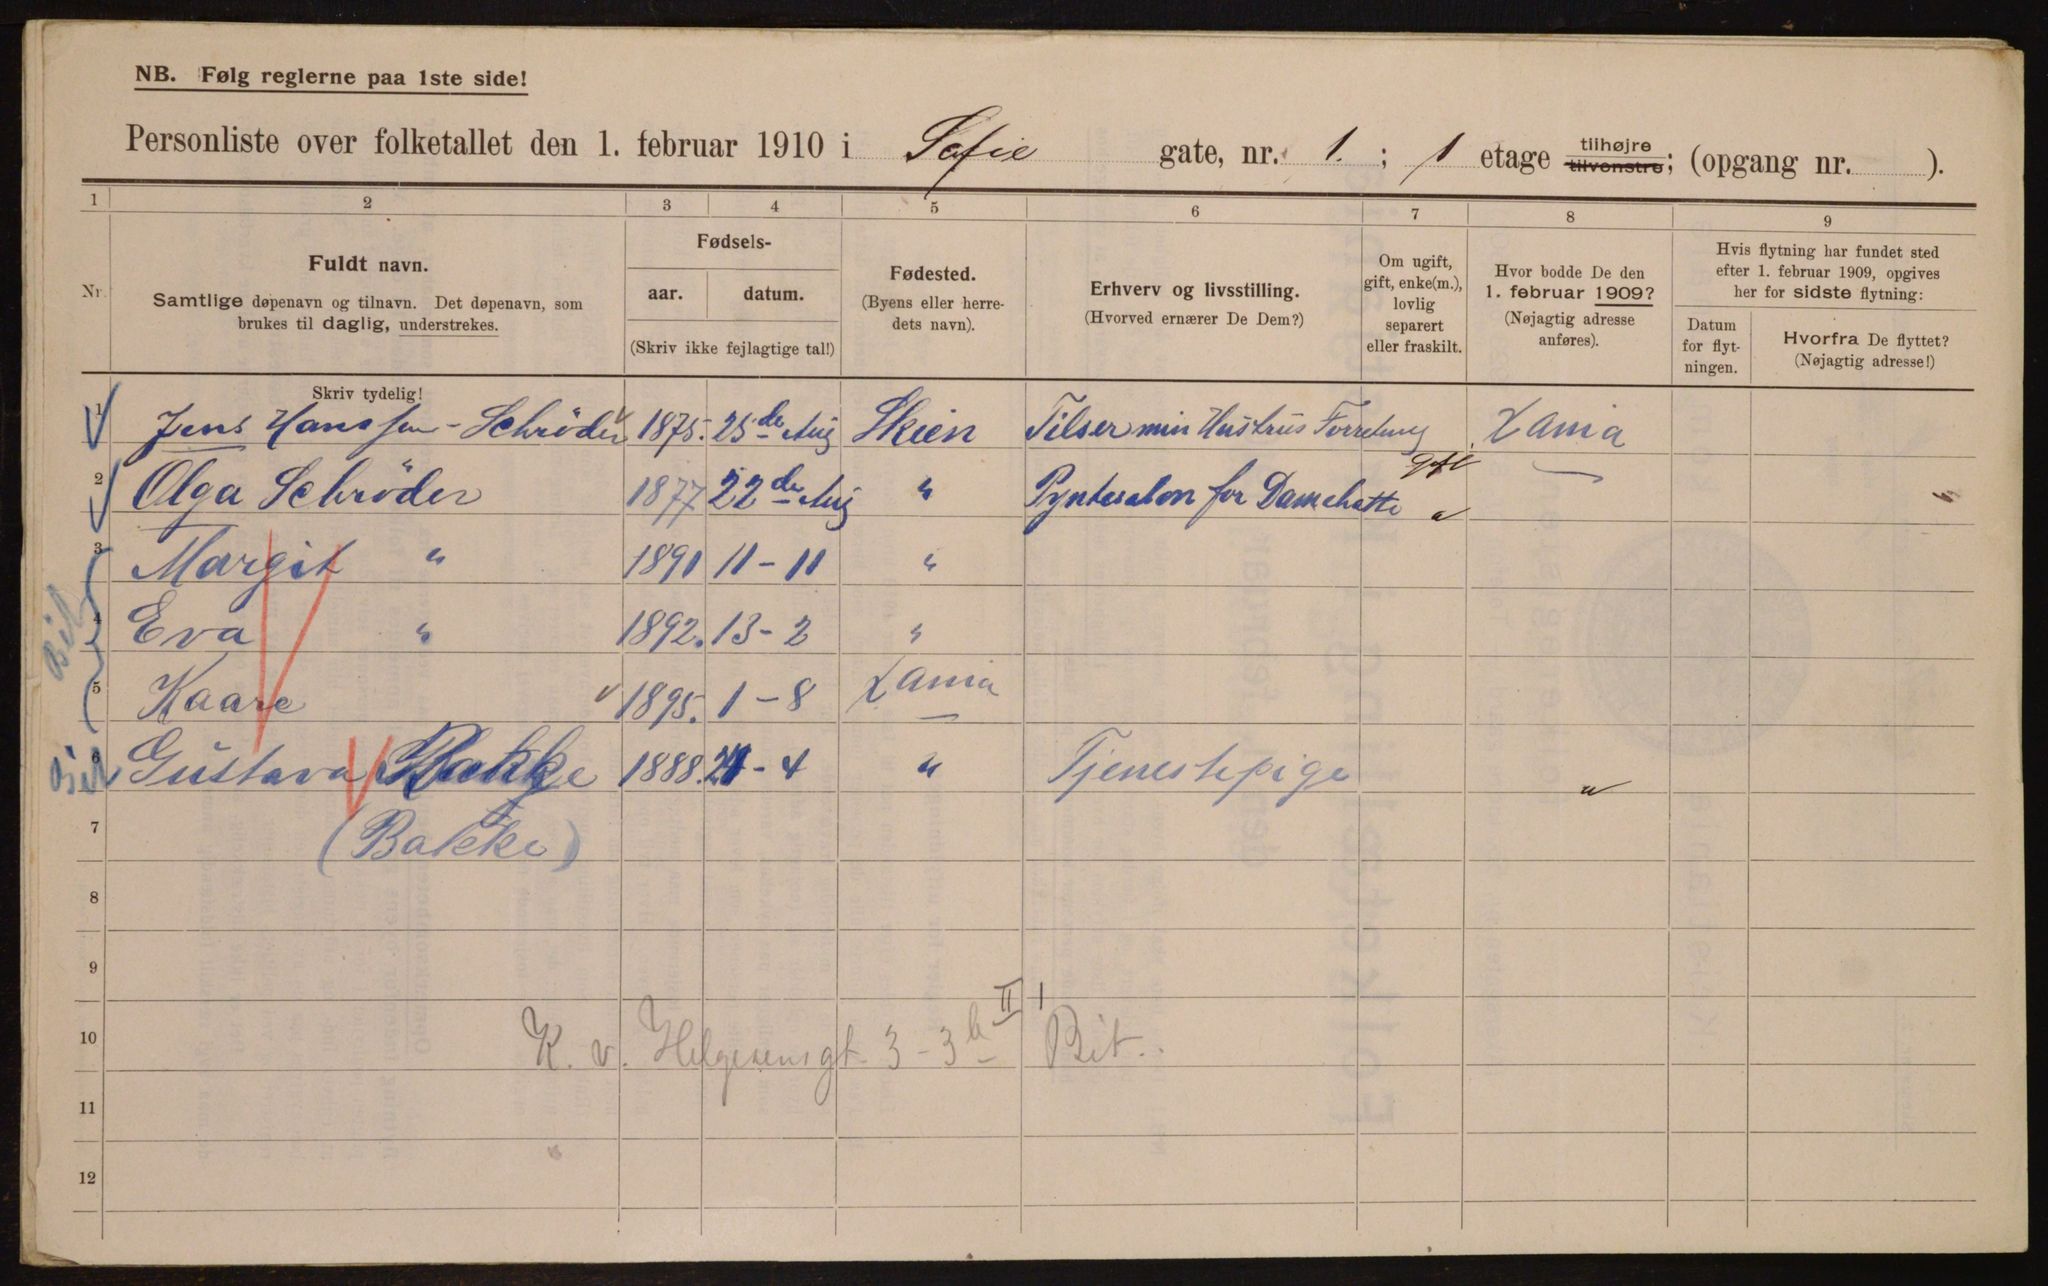 NB. Følg reglerne paa 1ste side!
Personliste over folketallet den 1. februar 1910 i Sofie gate, nr. 1. ; 1 etage tilhøjre tilvenstre; (opgang nr. ).
1 2 3 4 5 6 7 8 9
Nr.
Fuldt navn.
Samtlige døpenavn og tilnavn. Det døpenavn, som
brukes til daglig, understrekes.
Skriv tydelig!
Fødsels-
aar. datum.
(Skriv ikke fejlagtige tal!)
Fødested.
(Byens eller herre-
dets navn).
Erhverv og livsstilling.
(Hvorved ernærer De Dem?)
Om ugift,
gift, enke(m.),
lovlig
separert
eller fraskilt.
Hvor bodde De den
1. februar 1909?
(Nøjagtig adresse
anføres).
Hvis flytning har fundet sted
efter 1. februar 1909, opgives
her for sidste flytning:
Datum
for flyt-
ningen.
Hvorfra De flyttet?
(Nøjagtig adresse!)
1 Jens Hanssen-Schröder 1875. 25de Aug Skien Tilser min Hustrus Forretning gft Xania
2 Olga Schröder 1877 22de Aug " Pyntesalon for Damehatte "
3 Margit " 1891 11-11 "
4 Eva " 1892. 13-2 "
5 Kaare 1895. 1-8 Xania
6 Gustava Bakke 1888. 21-4 " Tjenestepige "
7 (Bakke)
8
9
10 K. v. Helgesensgt. 3-3b II 1 Bit.
11
12
Bil
Bil